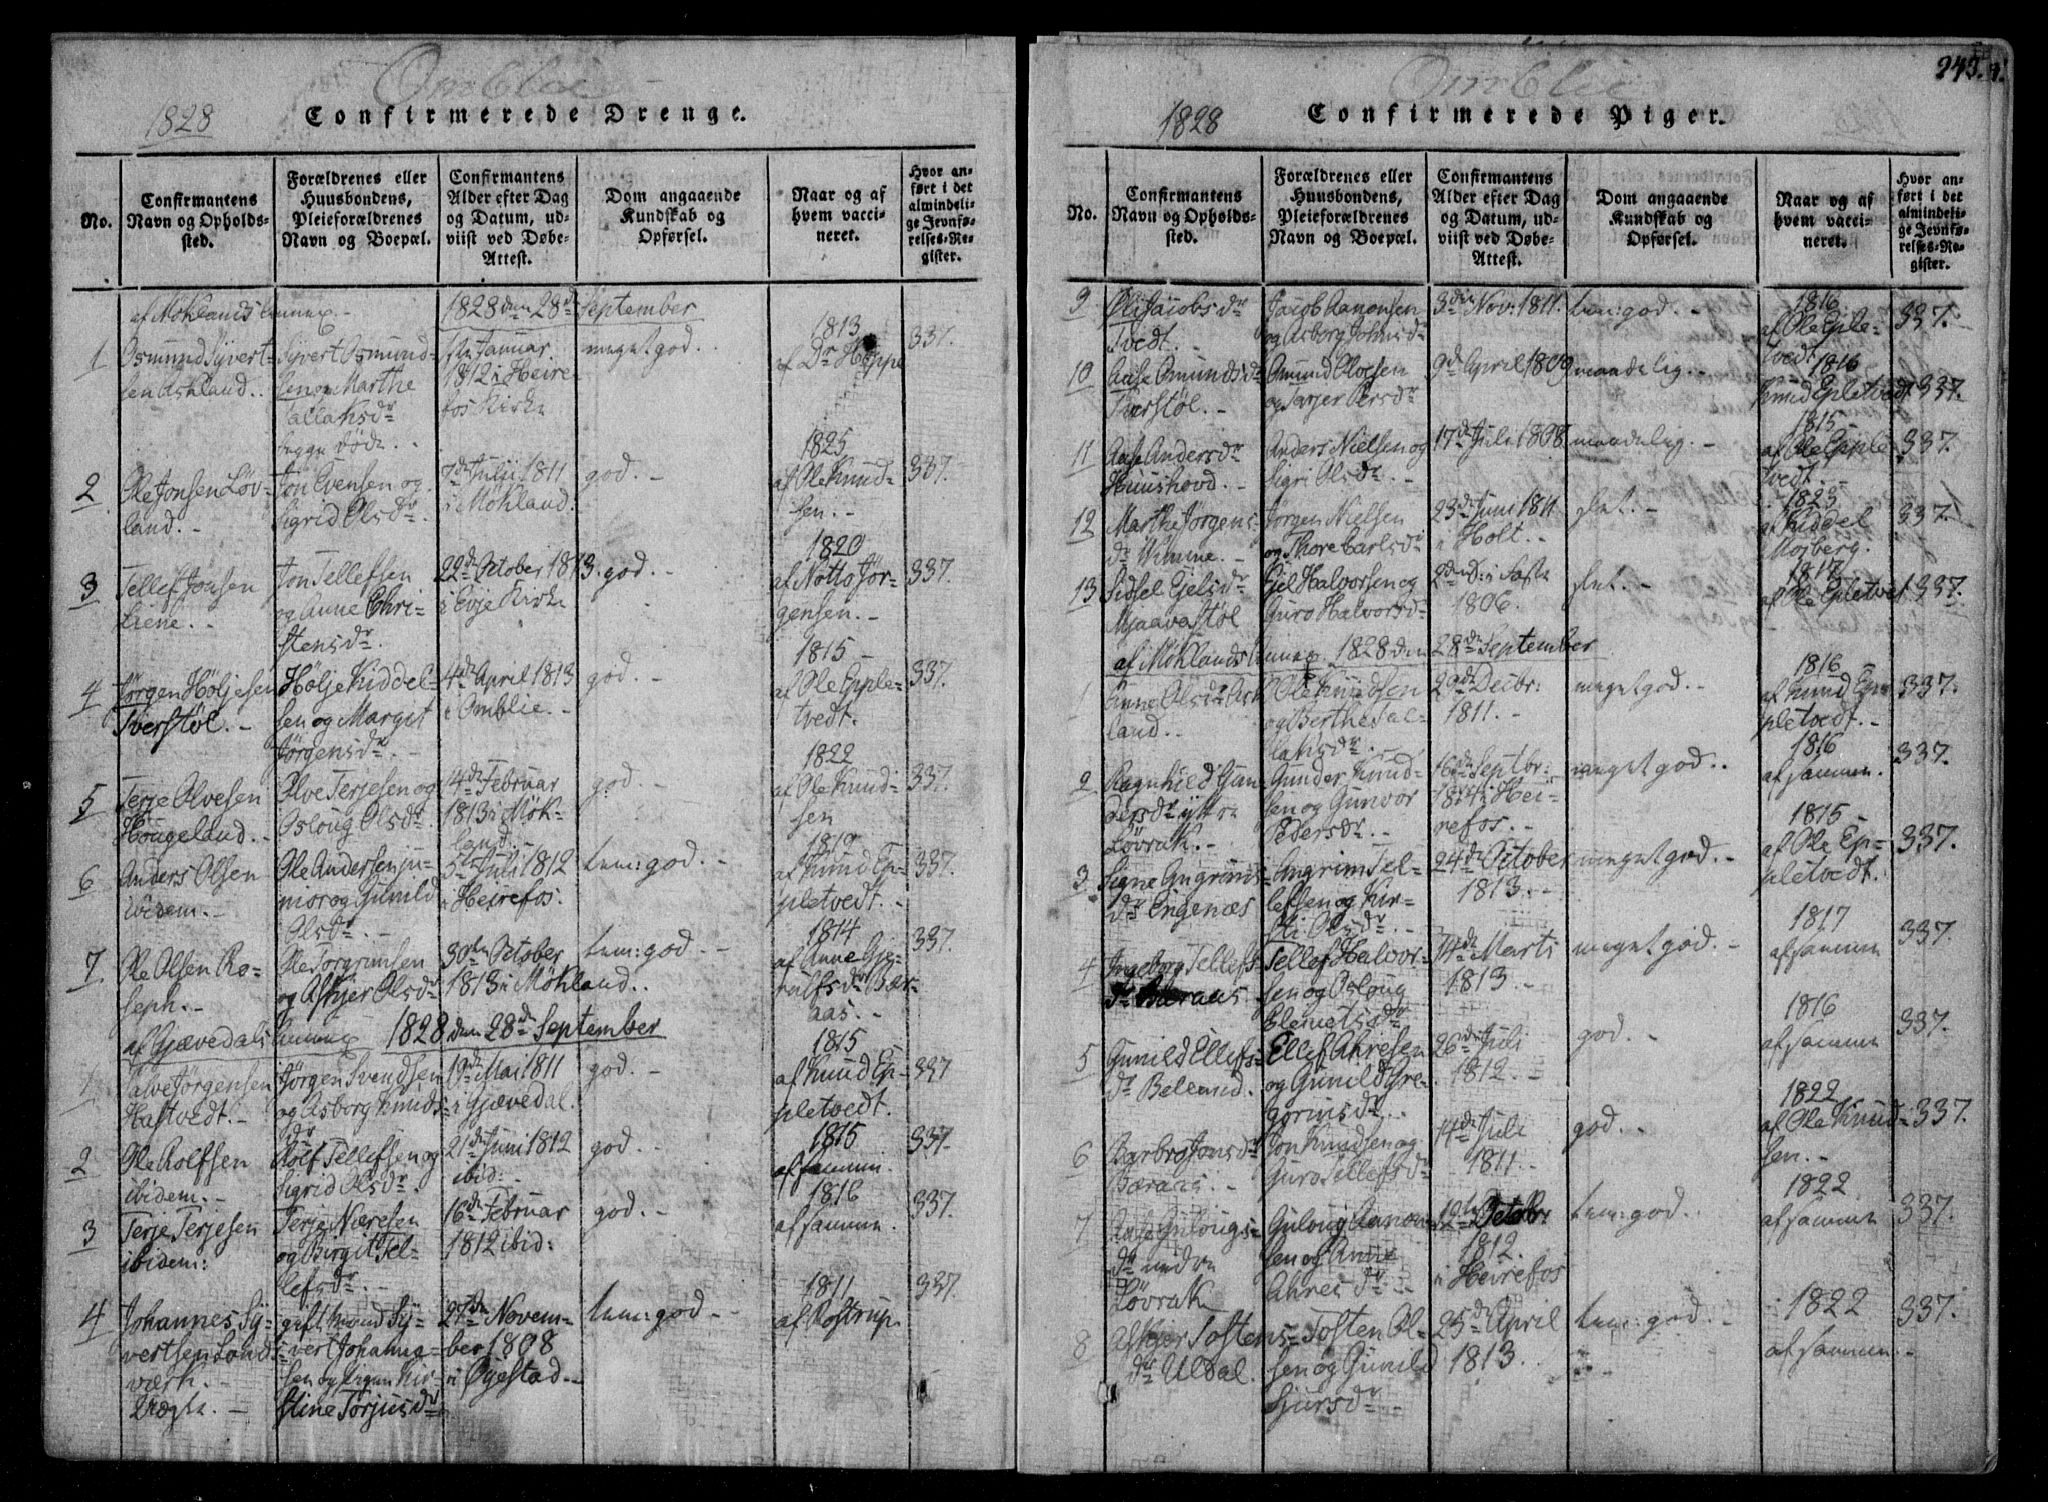 Omblie
1828
Confirmerede Drenge.
No.
Confirmantens
Navn og Opholds-
sted.
Forældrenes eller
Huusbondens,
Pleieforældrenes
Navn og Boepæl.
Confirmantens
Alder efter Dag
og Datum, ud-
viist ved Døbe-
Attest.
Dom angaaende
Kundskab og
Opførsel.
Naar og af
hvem vacci-
neret.
Hvor an-
ført i det
almindeli-
ge Jevnfø-
relses-Re-
gister.
af Møklands Annex. 1828 den 28de September
1
Osmund Syvert-
sen Askland.
Syvert Osmund-
sen og Marthe
Tallaksdr
Januar
1812 i Heire-
fos Kirke
meget god.
1813
af Dr Hoppe
337.
2
Ole Jonsen Løv-
land.
Jon Evensen og
Sigrid Olsdr.
7de Julii 1811
i Møkland.
god.
1825
af Ole Knud-
sen.
337.
3
Tellef Jonsen
Liene.
Jon Tellefsen
og Anne Chri-
stensdr.
22de October 1813.
i Evje Kirke
god.
1820
af Notto Jør-
gensen.
337.
4
Jørgen Høljesen
Tverstøl.
Hølje Kiddel-
sen og Margit
Jørgensdr.
4de April 1813
i Omblie.
god.
1815
af Ole Epple-
tvedt.
337.
5
Terje Olvesen
Hougeland.
Olve Terjesen og
Osloug Olsdr.
14de Februar
1813 i Møk-
land.
god.
1822
af Ole Knud-
sen
337.
6
Anders Olsen
ibidem.
Ole Andersen ju-
nior og Gunild
Olsdr.
5te Juli 1812
i Heirefos.
tem: god.
1819
af Knud Ep-
pletvedt.
337.
7
Ole Olsen Ro-
seph.
Ole Torgrimsen
og Askjer Olsdr
30te October
1813 i Møkland.
tem: god.
1814
af Anne Gje-
rulfsdr Bær-
aas.
337.
af Gjævedals Annex 1828 den 28de September
1
Talve Jørgensen
Hastvedt.
Jørgen Svendsen
og Asborg Knuds-
dr
19de Mai 1811
i Gjævedal.
god.
1815
af Knud Ep-
pletvedt.
337
2
Ole Rolfsen
ibidem.
Rolf Tellefsen og
Sigrid Olsdr.
21de Juni 1812
ibid:
god.
1815
af samme.
337.
3
Terje Terjesen
ibidem:
Terje Næresen
og Birgit Tel-
lefsdr.
16de Februar
1812 ibid:
god.
1816
af samme.
337.
4
Johannes Sy-
vertsen Londs-
værk.
gift mand Sy-
vert Johanne-
sen og Kir-
stine Torjusdr
27de Novem-
ber 1808
i Øyestad.
tem: god.
1811
af Rostrup.
337.
243.
Omblie
1828
Confirmerede Piger.
No.
Confirmantens
Navn og Opholds-
sted.
Forældrenes eller
Huusbondens,
Pleieforældrenes
Navn og Boepæl.
Confirmantens
Alder efter Dag
og Datum, ud-
viist ved Døbe-
Attest.
Dom angaaende
Kundskab og
Opførsel.
Naar og af
hvem vacci-
neret.
Hvor an-
ført i det
almindeli-
ge Jevnfø-
relses-Re-
gister.
9
Oli Jacobsdr
Tvedt.
Jacob Aanonsen
og Asborg Johnsdr
3die Nov: 1811.
tem: god.
1816
af Ole Eple-
tvedt
337.
10
Aase Omundsdr
Tverstøl.
Omund Oloesen
og Tarjer Persdr
9de April 1809
maadelig.
1816
Knud Epletvedt
337.
11
Aase Andersdr
Huushovd.
Anders Nielsen og
Sigri Olsdr.
17de Juli 1808
maadelig.
1815
af Ole Epple-
tvedt.
337.
12
Marthe Jørgens-
dr Vimme.
Jørgen Nielsen
og Thore Carlsdr
23de Juni 1811
i Holt.
slet.
1823
af Kiddel
Mosberg.
337.
13
Sidsel Ejelsdr
Mjaavastøl
Ejel Halvorsen og
Guro Halvorsdr
2den S: i Faste
1806.
slet.
1817
af Ole Epletvet
337.
af Møklands Annex 1828 den 28de September
1
Anne Olsdr Ask-
land.
Ole Knudsen
og Berthe Tal-
laksdr.
29de Decbr:
1811.
meget god.
1816
af Knud Ep-
pletvedt.
337.
2
Ragnhild Gun-
dersdr yttre
Løvrak.
Gunder Knud-
sen og Gunvor
Pedersdr.
16de Septbr:
1814 i Hei-
refos.
meget god.
1816
af samme.
337.
3
Signe Angrims-
dr Engenæs
Angrim Tel-
lefsen og Kir-
sti Olsdr.
24de October
1813.
meget god.
1815
af Ole Ep-
pletvedt.
337.
4
Ingeborg Tellefs-
dr Bæraas
Tellef Halvor-
sen og Osloug
Clemetsdr
14de Marti
1813.
meget god.
1817
af samme
337.
5
Gunild Ellefs-
dr Belland.
Ellef Ahresen
og Gunild Gre-
gorius dr.
26de Juli
1812.
god.
1816
af samme
337.
6
Barbro Jonsdr
Bæraas.
Jon Knudsen og
Guro Tellefsdr
14de Juli
1811.
god.
1822
af Ole Knud-
sen.
337.
7
Aase Gulougs-
dr nedre
Løvrak
Guloug Aanon-
sen og Anne
Ahresdr.
12te Octobr
1812.
i Heirefos
tem: god.
1822
af samme
337.
8
Askjer Tostens-
dr Uldal.
Tosten Ol-
sen og Gunild
Sjursdr
25de April
1813.
tem: god.
1822
af samme.
337.